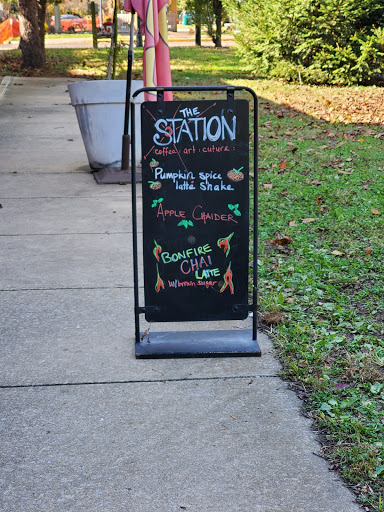 THE
STATION
coffee. art. cuture.
Pumpkin spice
latte shake
APPLE CHAIDER
BONFIRE
CHAI
LATTE
w/brown sugar